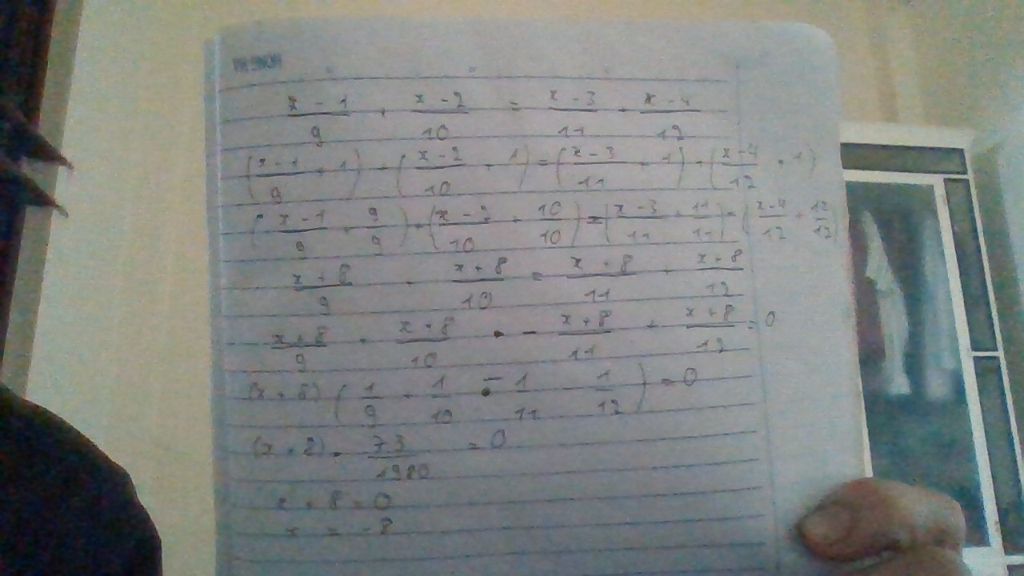 x - 1 / 9 + x - 2 / 10 = x - 3 / 11 + x - 4 / 12
(x - 1 / 9 + 1) + (x - 2 / 10 + 1) = (x - 3 / 11 + 1) + (x - 4 / 12 + 1)
(x - 1 / 9 + 9 / 9) + (x - 2 / 10 + 10 / 10) = (x - 3 / 11 + 11 / 11) + (x - 4 / 12 + 12 / 12)
x + 8 / 9 + x + 8 / 10 = x + 8 / 11 + x + 8 / 12
x + 8 / 9 + x + 8 / 10 - x + 8 / 11 + x + 8 / 12 = 0
(x + 8) (1 / 9 + 1 / 10 - 1 / 11 - 1 / 12) = 0
73 / 1980 = 0
x + 8 = 0
x = - 8